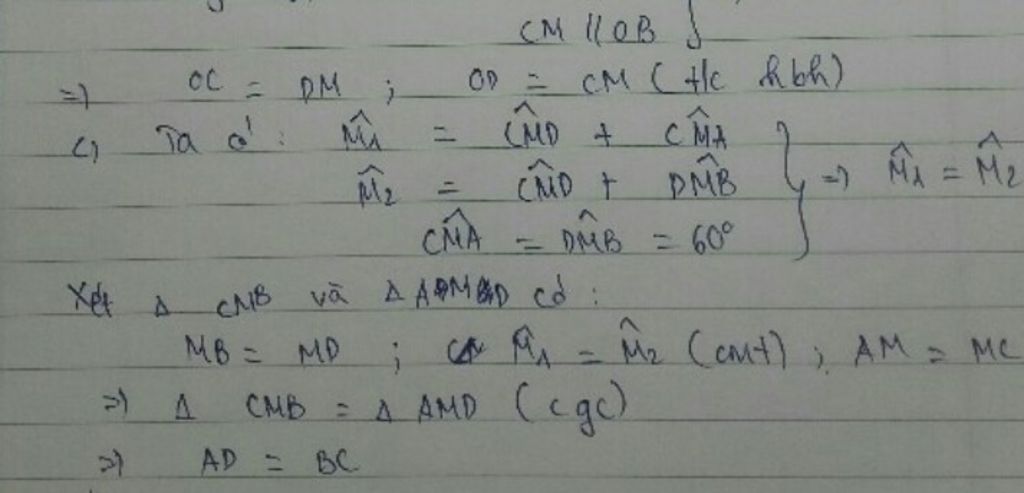 CM // OB }
=) OC = DM ; OD = CM ( t/c hbh)
c) Ta có : M̂₁ = CM̂D + CM̂A
M̂₂ = CM̂D + DM̂B } =) M̂₁ = M̂₂
CM̂A = DM̂B = 60°
Xét Δ CMB và Δ AMD có :
MB = MD ; M̂₁ = M̂₂ (cmt) ; AM = MC
=) Δ CMB = Δ AMD (cgc)
=) AD = BC